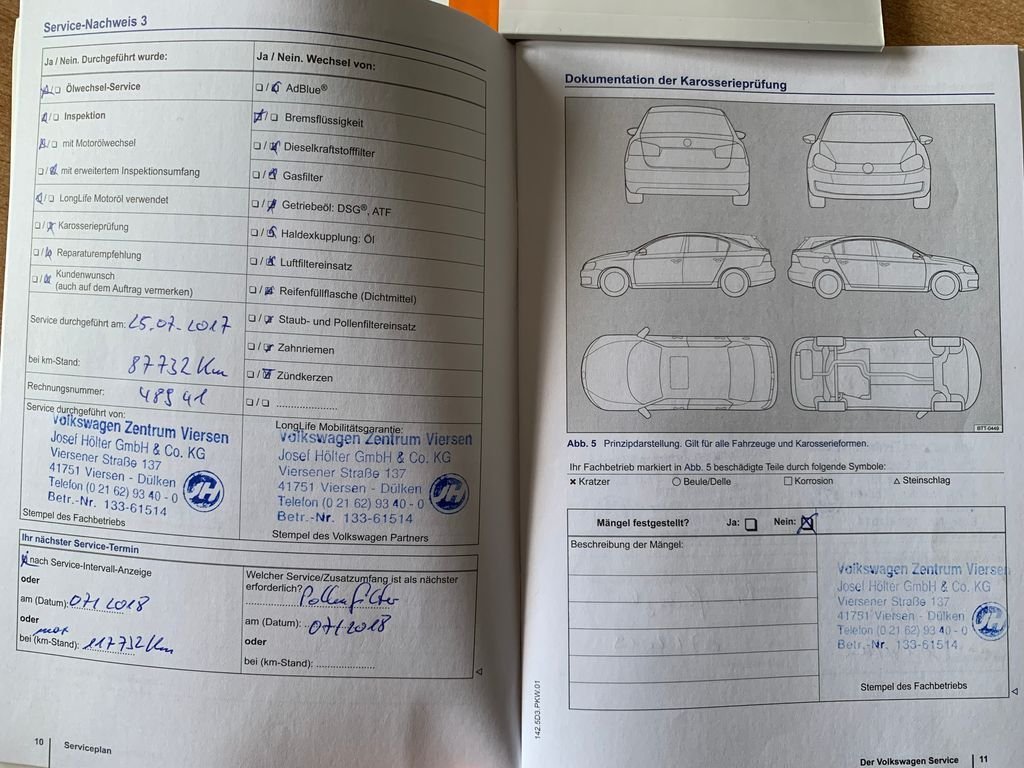 Service-Nachweis 3
Ja / Nein. Durchgeführt wurde:
Ölwechsel-Service
Inspektion
mit Motorölwechsel
mit erweitertem Inspektionsumfang
LongLife Motoröl verwendet
Karosserieprüfung
Reparaturempfehlung
Kundenwunsch
(auch auf dem Auftrag vermerken)
Service durchgeführt am: 25.07.2017
bei km-Stand: 87732 Km
Rechnungsnummer: 48941
Service durchgeführt von:
Volkswagen Zentrum Viersen
Josef Hölter GmbH & Co. KG
Viersener Straße 137
41751 Viersen - Dülken
Telefon (0 21 62) 93 40 - 0
Betr.-Nr. 133-61514
JH
Stempel des Fachbetriebs
Ja / Nein. Wechsel von:
AdBlue®
Bremsflüssigkeit
Dieselkraftstofffilter
Gasfilter
Getriebeöl: DSG®, ATF
Haldexkupplung: Öl
Luftfiltereinsatz
Reifenfüllflasche (Dichtmittel)
Staub- und Pollenfiltereinsatz
Zahnriemen
Zündkerzen
LongLife Mobilitätsgarantie:
Volkswagen Zentrum Viersen
Josef Hölter GmbH & Co. KG
Viersener Straße 137
41751 Viersen - Dülken
Telefon (0 21 62) 93 40 - 0
Betr.-Nr. 133-61514
JH
Stempel des Volkswagen Partners
Ihr nächster Service-Termin
nach Service-Intervall-Anzeige
oder
am (Datum): 07/2018
oder
max
bei (km-Stand): 117732 Km
Welcher Service/Zusatzumfang ist als nächster
erforderlich? Pollenfilter
am (Datum): 07/2018
oder
bei (km-Stand):
10 Serviceplan
Dokumentation der Karosserieprüfung
BTT-0449
Abb. 5 Prinzipdarstellung. Gilt für alle Fahrzeuge und Karosserieformen.
Ihr Fachbetrieb markiert in Abb. 5 beschädigte Teile durch folgende Symbole:
× Kratzer ○ Beule/Delle □ Korrosion △ Steinschlag
Mängel festgestellt? Ja: Nein:
Beschreibung der Mängel:
Volkswagen Zentrum Viersen
Josef Hölter GmbH & Co. KG
Viersener Straße 137
41751 Viersen - Dülken
Telefon (0 21 62) 93 40 - 0
Betr.-Nr. 133-61514
JH
Stempel des Fachbetriebs
142.5D3.PKW.01
Der Volkswagen Service 11